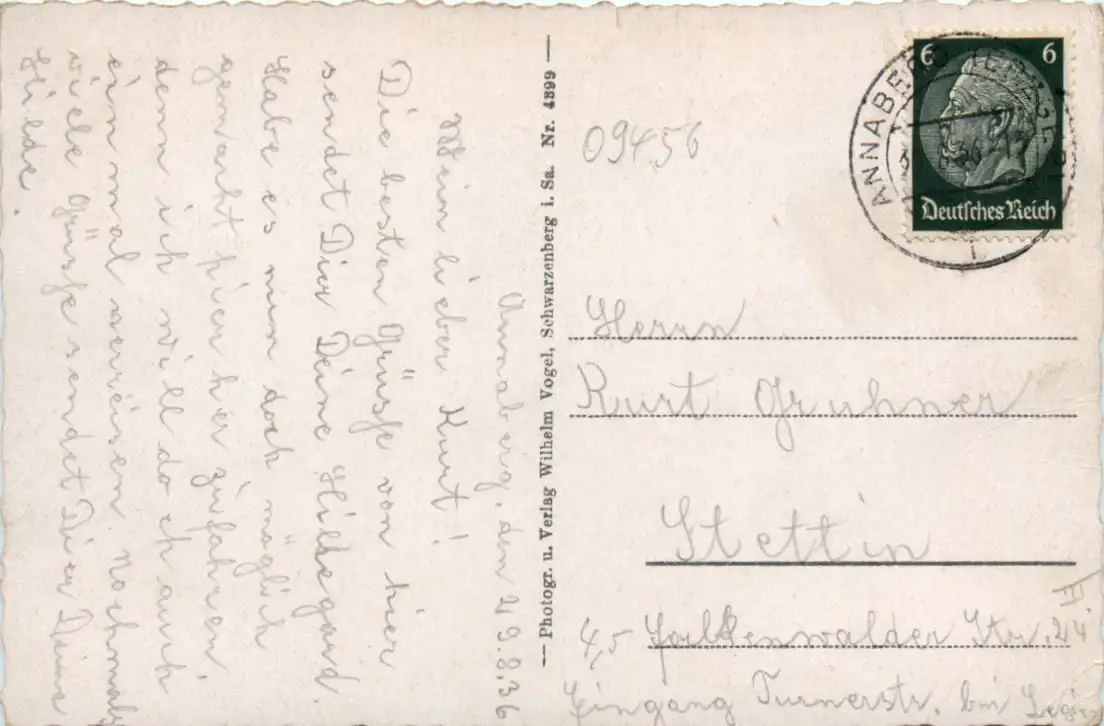 Annaberg, den 29.8.36
Mein lieber Kurt!
Die besten Grüsse von hier
sendet Dir Deine Hildegard.
Habe es nun doch möglich
gemacht hier her zufahren,
denn ich will doch auch
einmal verreisen. Nochmals
viele Grüsse sendet Dir Deine
Hilde.
— Photogr. u. Verlag Wilhelm Vogel, Schwarzenberg i. Sa. Nr. 4399 —
09456
6 6
Deutsches Reich
ANNABERG
Herrn
Kurt Gruhner
Stettin
Falkenwalder Str. 24 II.
Eingang Turnerstr. bei